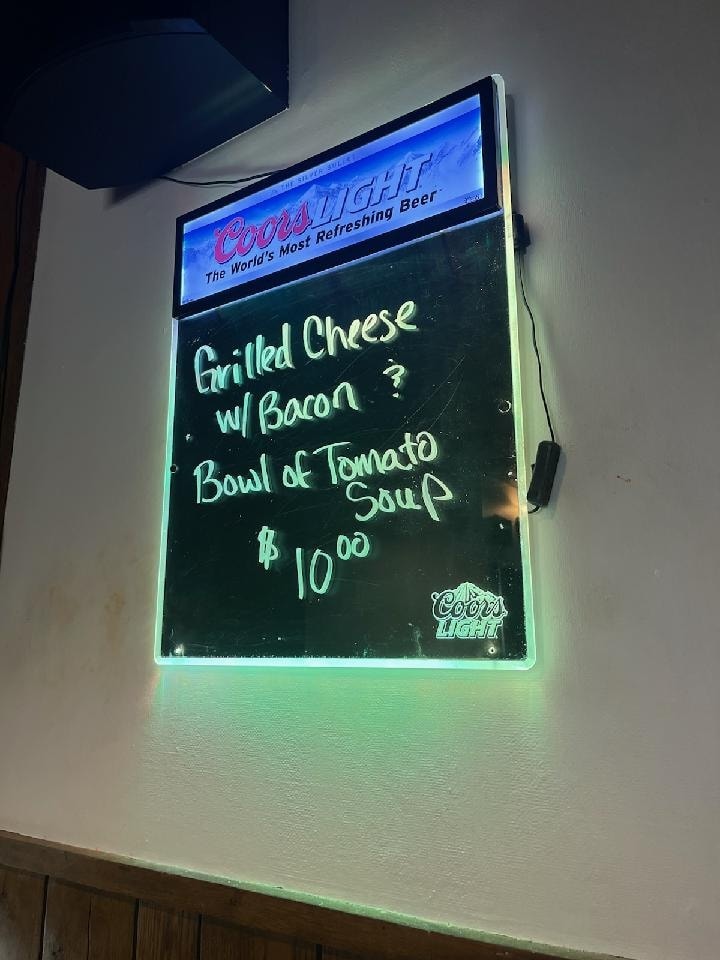 THE SILVER BULLET
Coors LIGHT
The World's Most Refreshing Beer
Grilled Cheese
w/ Bacon &
Bowl of Tomato
Soup
$ 10.00
Coors
LIGHT